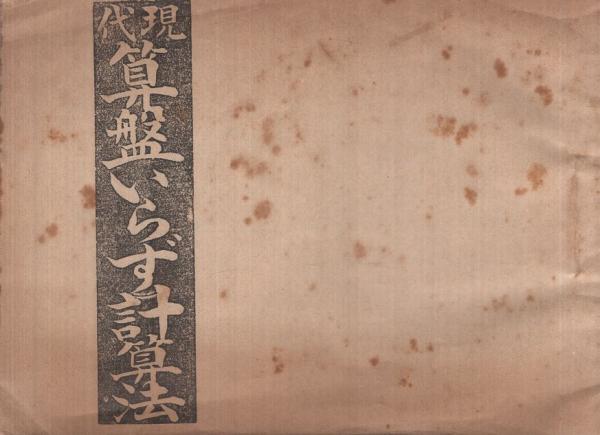 現代
算盤いらず計算法